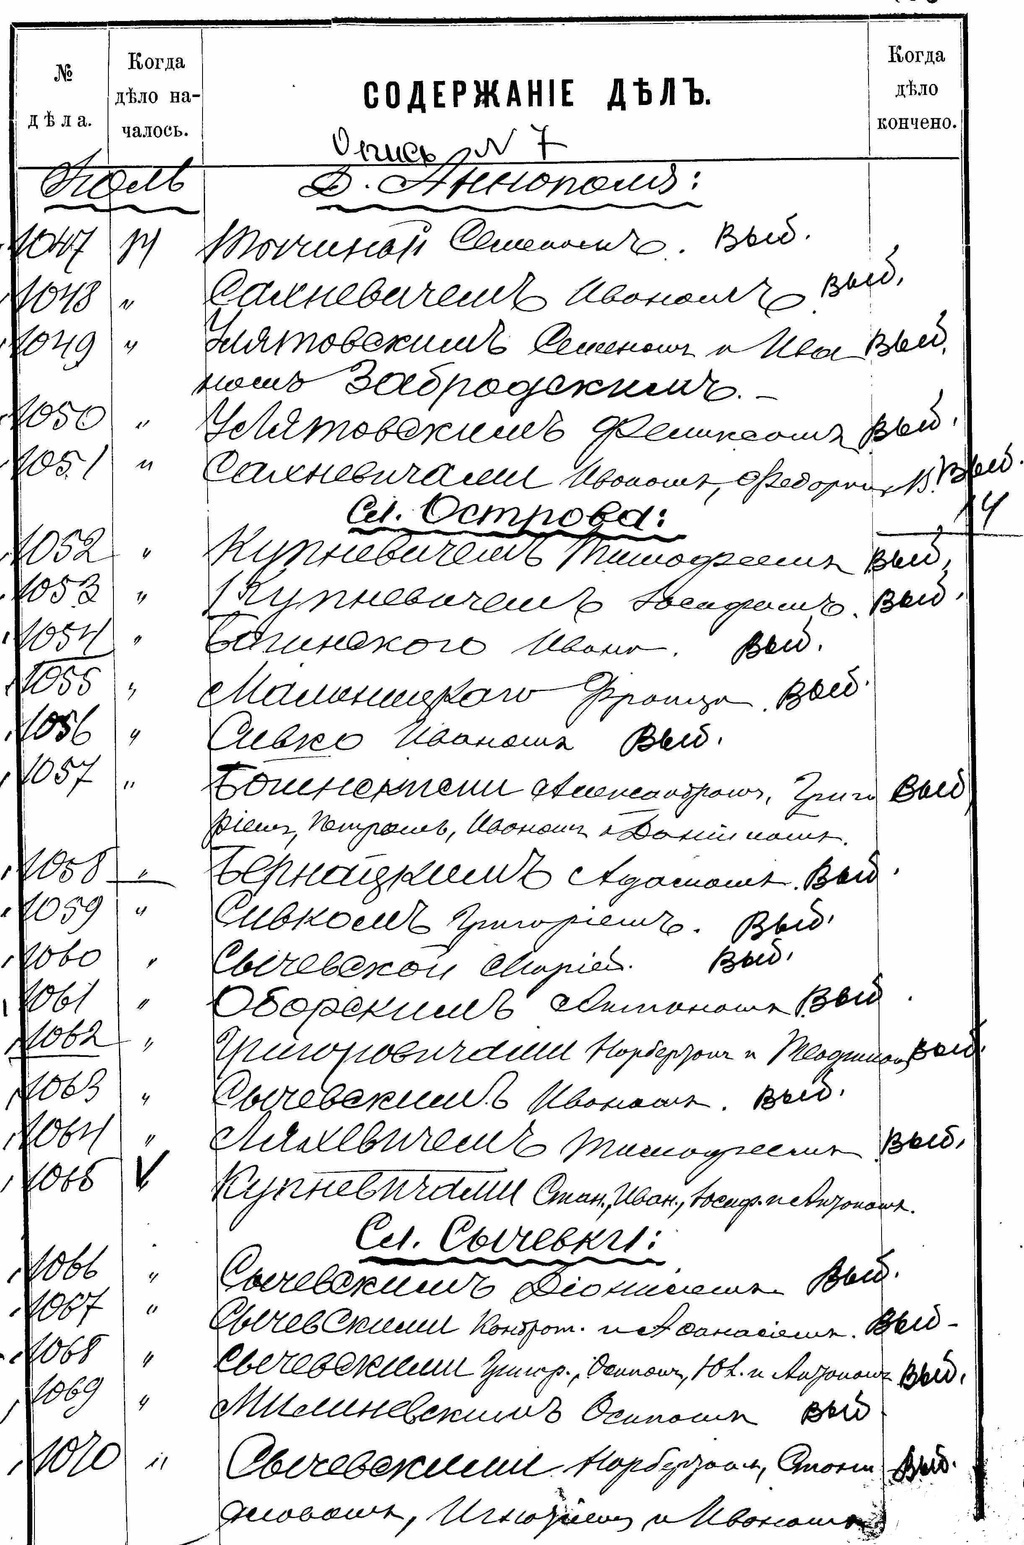 № дѣла.
Когда дѣло началось.
СОДЕРЖАНІЕ ДѢЛЪ.
Когда дѣло кончено.
Опись N 7
Д. Аннополь:
1047 Семеномъ. Выб.
1048 " Сахневичемъ Иваномъ Выб.
1049 " Улятовскимъ Семеномъ и Ива Выб.
номъ Забродскимъ. —
1050 " Улятовскимъ Феликсомъ Выб.
1051 " Сахневичами Иваномъ, Выб.
14
Сл. Острова:
1052 " Купневичемъ Тимофеемъ Выб.
1053 " Купневичемъ Іосифомъ. Выб.
1054 " Богинского Ивана. Выб.
1055 " Франца Выб.
1056 " Сивко Иваномъ Выб.
1057 " Александромъ, Григо Выб
ріемъ, Петромъ, Иваномъ и
1058 " Бернацкимъ Адамомъ. Выб.
1059 " Сивкомъ Григоріемъ. Выб.
1060 " Сычевской Маріей. Выб.
1061 " Оборскимъ Антономъ Выб.
1062 " Григоровичами Норбертомъ и Выб.
1063 " Сычевскимъ Иваномъ. Выб.
1064 " Ляхевичемъ Тимофеемъ Выб.
1065 " Купневичами Стан., Иван., Іосиф. и Антономъ.
Сл. Сычевки:
1066 " Сычевскимъ Діонисіемъ Выб.
1067 " Сычевскими Кондрат. и Афанасіемъ. Выб —
1068 " Сычевскими Григор., Осипомъ, Юл. и Антономъ Выб.
1069 " Милиневскимъ Осипомъ Выб.
1070 " Сычевскими Норбертомъ, Стани Выб.
славомъ, Игнатіемъ и Иваномъ